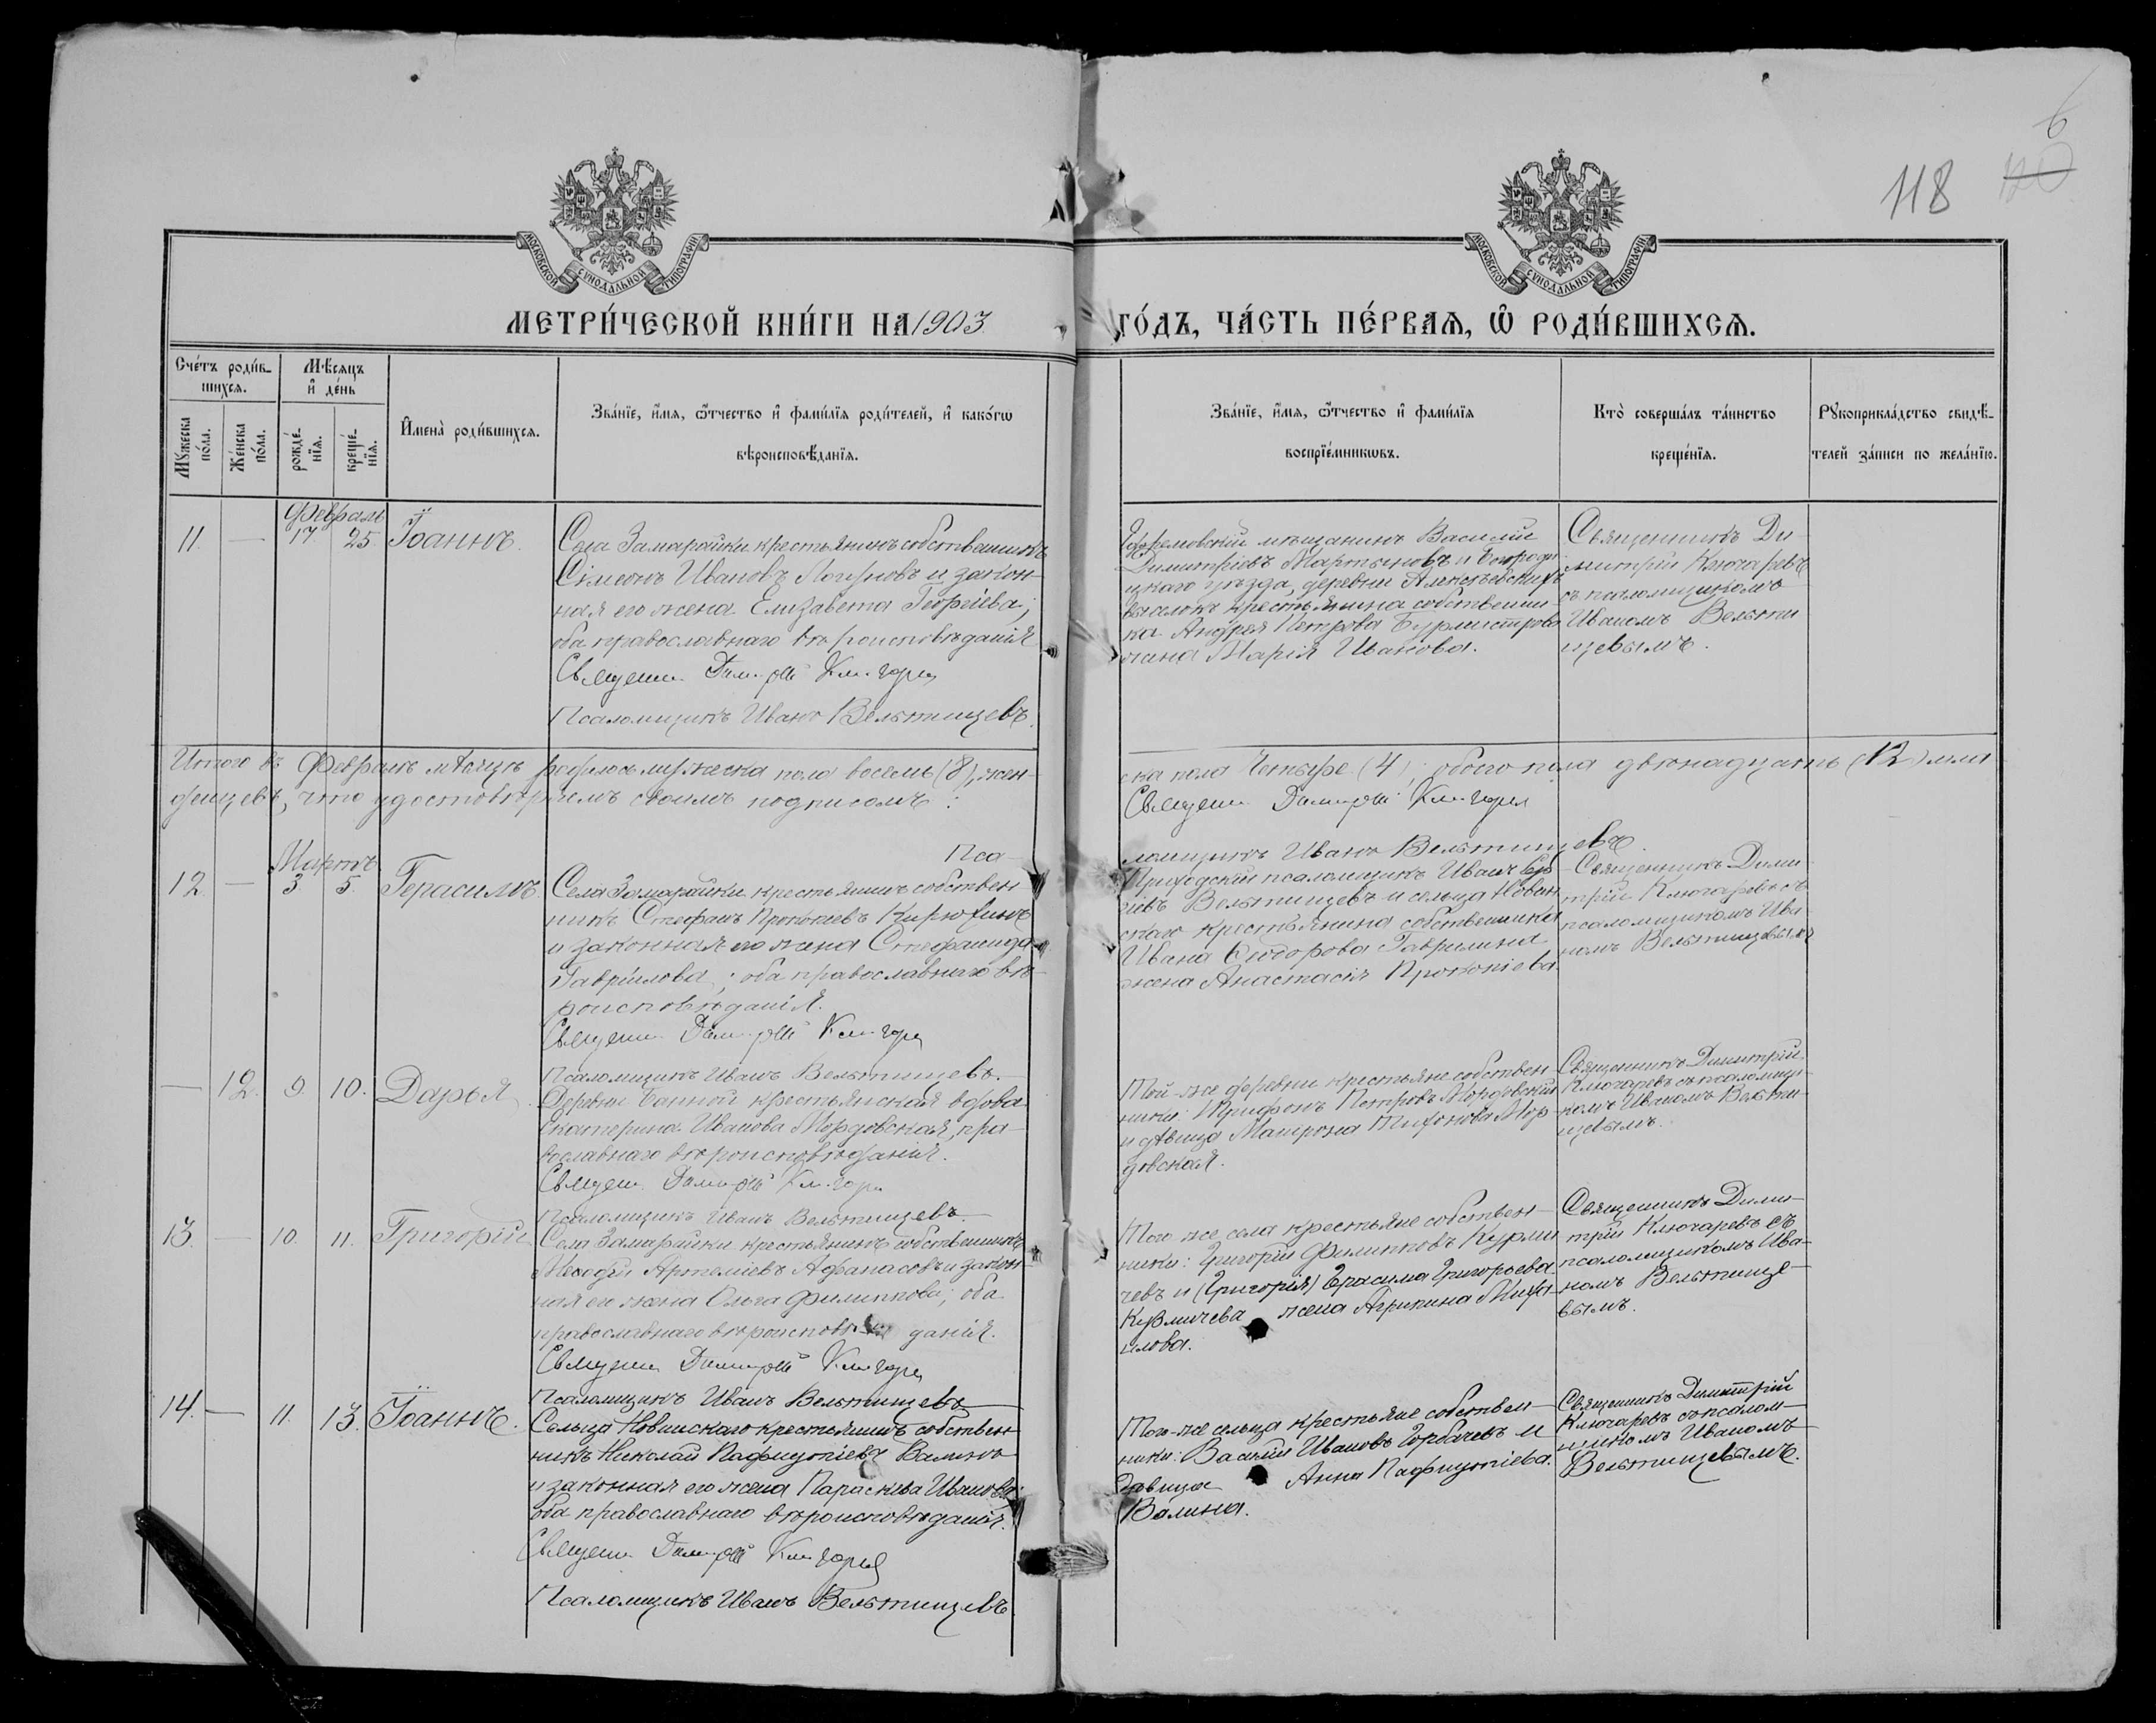 6
118
МОСКОВСКОЙ СѴНОДАЛЬНОЙ ТИПОГРАФІИ
МОСКОВСКОЙ СѴНОДАЛЬНОЙ ТИПОГРАФІИ
МЕТРИ́ЧЕСКОЙ КНИ́ГИ НА 1903
ГО́ДЪ, ЧА́СТЬ ПЕ́РВАѦ, Ѡ҆ РОДИ́ВШИХСѦ.
Сче́тъ роди́в-
шихсѧ.
Мѣ́сѧцъ
и҆ де́нь
Мꙋ́жеска
по́ла.
Же́нска
по́ла.
рожде́-
нїѧ.
креще́-
нїѧ.
И҆мена̀ роди́вшихсѧ.
Зва́нїе, и҆́мѧ, ѻ҆́тчество и҆ фами́лїѧ роди́телей, и҆ како́гѡ
вѣроисповѣ́данїѧ.
Зва́нїе, и҆́мѧ, ѻ҆́тчество и҆ фами́лїѧ
воспрїе́мникѡвъ.
Кто̀ соверша́лъ та́инство
креще́нїѧ.
Рꙋкоприкла́дство свидѣ́-
телей за́писи по жела́нїю.
Февраль
11. — 17 25. Іоаннъ.
Села Замарайки крестьянинъ собственникъ
Сімеонъ Ивановъ Логуновъ и закон-
ная его жена Елизавета Георгіева;
оба православнаго вѣроисповѣданія
Священн. Димитрій Ключарев
Псаломщикъ Иванъ Вельтищевъ.
Ефремовскій мѣщанинъ Василій
Димитріевъ Мартыновъ и Богороди-
цкаго уѣзда, деревни Алексѣевскихъ
выселокъ крестьянина собственни-
ка Андрея Петрова Бурмистрова
жена Марія Иванова.
Священникъ Ди-
митрій Ключаревъ
съ псаломщикомъ
Иваномъ Вельти-
щевымъ.
Итого въ Февралѣ мѣсяцѣ родилось мужеска пола восемь (8), жен-
ска пола четыре (4), обоего пола двѣнадцать (12) мла-
денцевъ, что удостовѣряемъ своимъ подписомъ:
Священн. Димитрій Ключарев
Пса-
ломщикъ Иванъ Вельтищевъ.
Мартъ
12. — 3 5. Герасимъ.
Села Замарайки крестьянинъ собствен-
никъ Стефанъ Прокопіевъ Кирюхинъ
и законная его жена Стефанида
Гаврилова; оба православнаго вѣ-
роисповѣданія.
Священн. Димитрій Ключарев
Псаломщикъ Иванъ Вельтищевъ.
Приходскій псаломщикъ Иванъ Сер-
гіевъ Вельтищевъ и сельца Новин-
скаго крестьянина собственника
Ивана Ѳеодорова Гаврилина
жена Анастасія Прокопіева.
Священникъ Дими-
трій Ключаревъ съ
псаломщикомъ Ива-
номъ Вельтищевымъ
— 12. 9. 10. Дарья.
Деревни Банной крестьянская вдова
Екатерина Иванова Мордовская, пра-
вославнаго вѣроисповѣданія.
Священн. Димитрій Ключарев
Псаломщикъ Иванъ Вельтищевъ.
Той-же деревни крестьяне собствен-
ники: Трифонъ Петровъ Мордовскій
и дѣвица Матрона Тихонова Мор-
довская.
Священникъ Димитрій
Ключаревъ съ псаломщи-
комъ Иваномъ Вельти-
щевымъ.
13. — 10. 11. Григорій.
Села Замарайки крестьянинъ собственникъ
Меѳодій Артеміевъ Афанасовъ и закон-
ная его жена Ольга Филиппова; оба
православнаго вѣроисповѣданія.
Священн. Димитрій Ключарев
Псаломщикъ Иванъ Вельтищевъ
Того же села крестьяне собствен-
ники: Григорій Филипповъ Курми-
чевъ и (Григорія) Герасима Григорьева
Кузмичева жена Агрипина Миха-
илова.
Священникъ Дими-
трій Ключаревъ съ
псаломщикомъ Ива-
номъ Вельтище-
вымъ.
14. — 11. 13. Іоаннъ.
Сельца Новинскаго крестьянинъ собствен-
никъ Николай Пафнутіевъ Валинъ
и законная его жена Параскева Иванова;
оба православнаго вѣроисповѣданія.
Священн. Димитрій Ключарев
Псаломщикъ Иванъ Вельтищевъ
Того-же сельца крестьяне собствен-
ники: Василій Ивановъ Горбачевъ и
дѣвица Анна Пафнутіева
Валина.
Священникъ Димитрій
Ключаревъ съ псалом-
щикомъ Иваномъ
Вельтищевымъ.